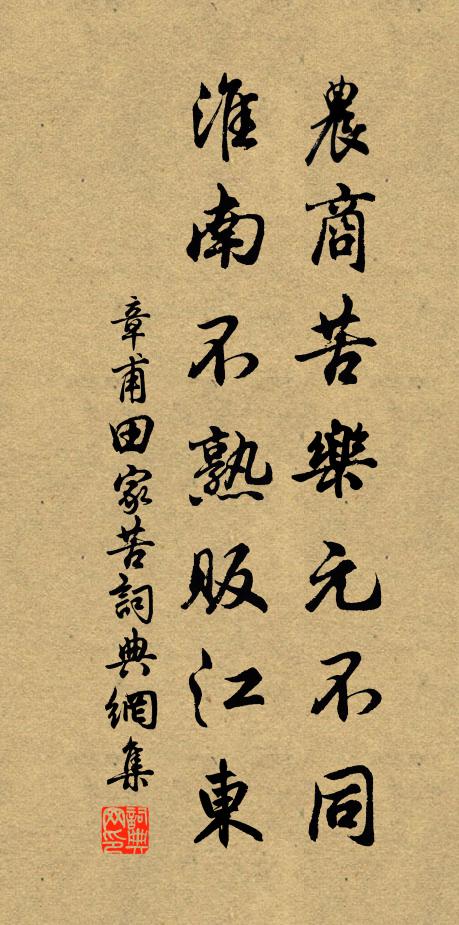 農商苦樂元不同
淮南不熟販江東
章甫田家苦詞典網集
詞典网印